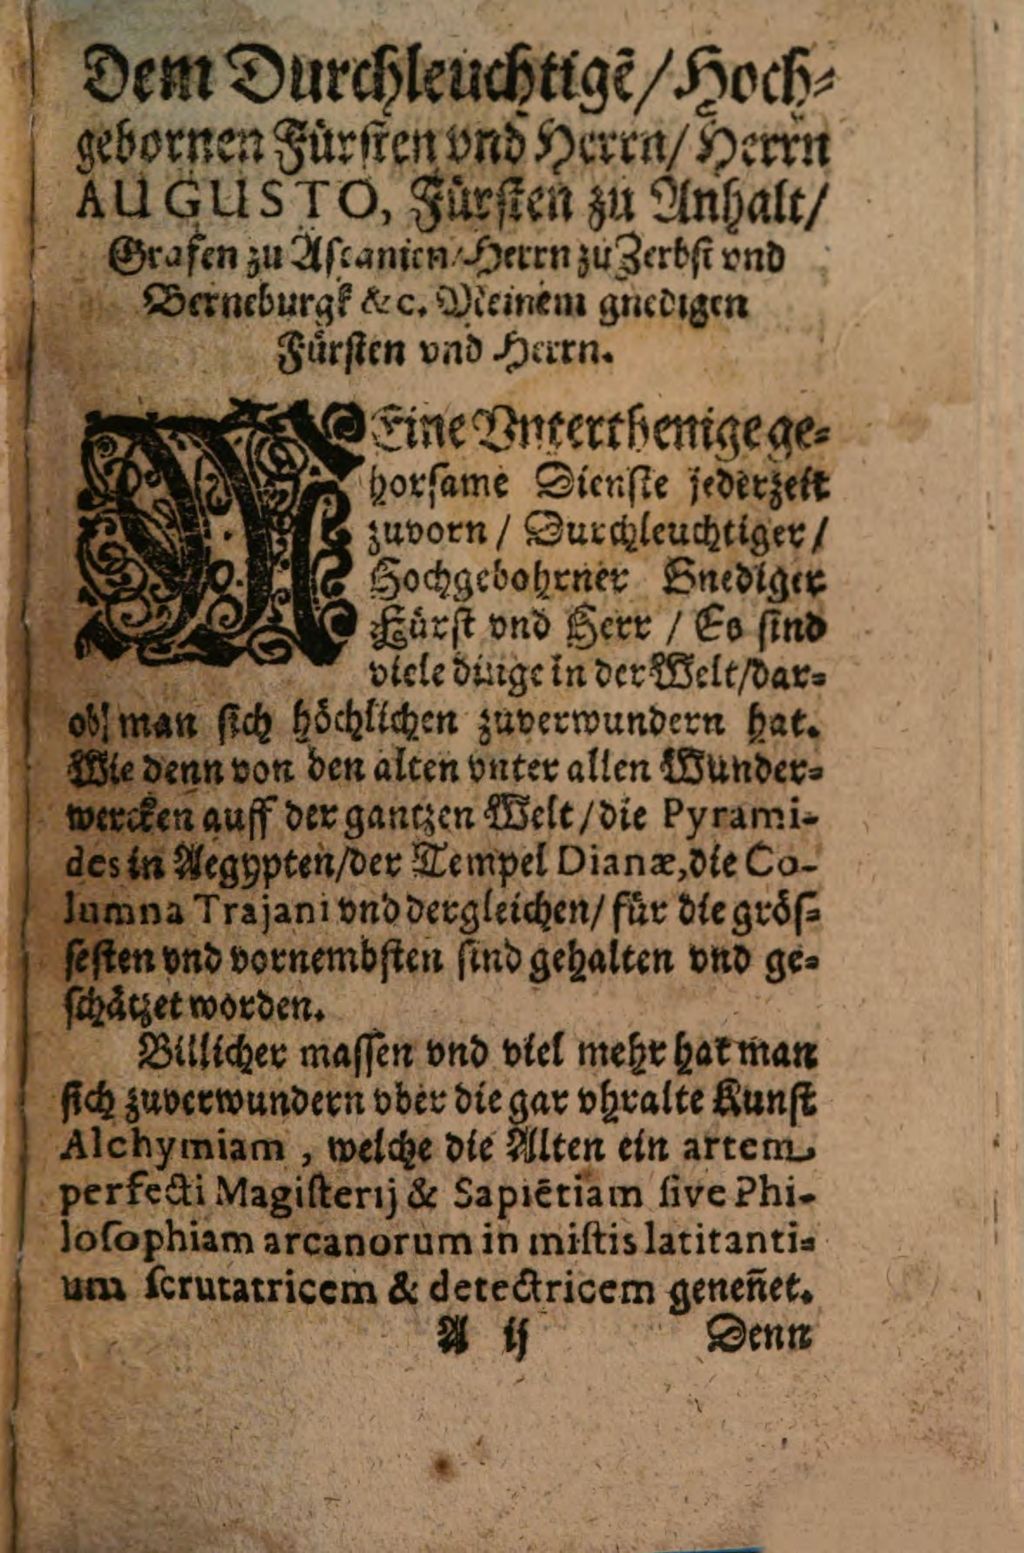 Dem Durchleuchtigẽ/Hoch-
gebornen Fürsten vnd Herrn/ Herrn
AUGUSTO, Fürsten zu Anhalt/
Grafen zu Ascanien/Herrn zu Zerbst vnd
Berneburgk &c. Meinem gnedigen
Fürsten vnd Herrn.
MEine Vnterthenige ge-
horsame Dienste jederzeit
zuvorn / Durchleuchtiger /
Hochgebohrner Gnediger
Fürst vnd Herr / Es sind
viele dinge in der Welt/dar-
ob man sich höchlichen zuverwundern hat.
Wie denn von den alten vnter allen Wunder-
wercken auff der gantzen Welt/die Pyrami-
des in Aegypten/der Tempel Dianæ,die Co-
lumna Trajani vnd dergleichen/ für die grös-
sesten vnd vornembsten sind gehalten vnd ge-
schätzet worden.
Billicher massen vnd viel mehr hat man
sich zuverwundern vber die gar vhralte Kunst
Alchymiam , welche die Alten ein artem
perfecti Magisterij & Sapiẽtiam sive Phi-
losophiam arcanorum in mistis latitanti-
um scrutatricem & detectricem geneñet.
A ij Denn